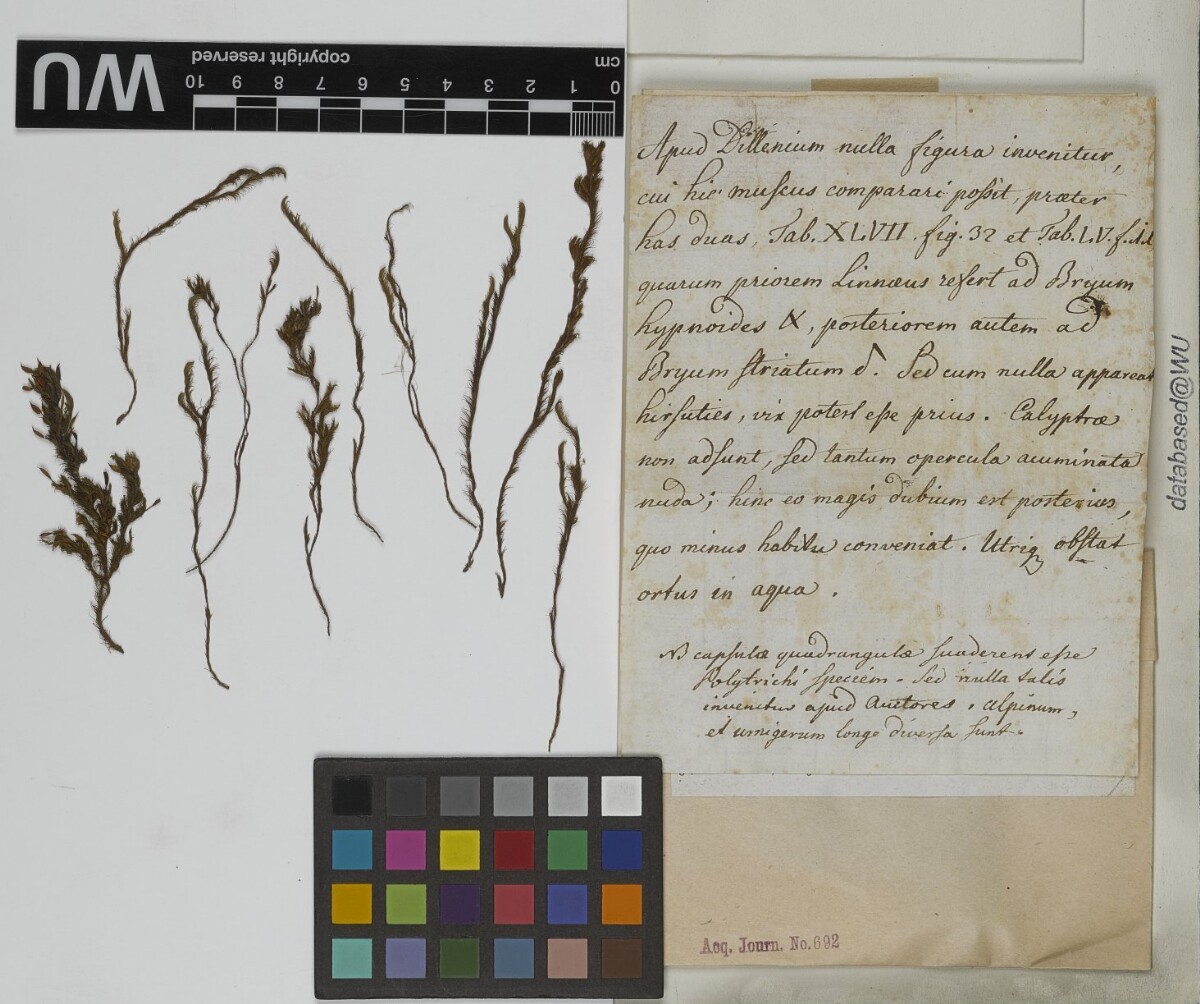 WU
copyright reserved
cm
10 9 8 7 6 5 4 3 2 1 0
Apud Dillenium nulla figura invenitur,
cui hic muſcus comparari poſsit, præter
has duas, Tab. XLVII. fig. 32 et Tab. LV. f.
quarum priorem Linnæus refert ad Bryum
hypnoides, poſteriorem autem ad
Bryum ſtriatum δ. Sed cum nulla appareat
hirſuties, vix poteſt eſse prius. Calyptræ
non adſunt, ſed tantum opercula acuminata
nuda; hinc eo magis dubium est poſterius,
quo minus habitu conveniat. Utriq obſtat
ortus in aqua.
NB capſulæ quadrangulæ ſuaderent eſse
Polytrichi ſpeciem. Sed nulla talis
invenitur apud Auctores, alpinum,
et urnigerum longe diverſa ſunt.
databased@WU
Acq. Journ. No. 692